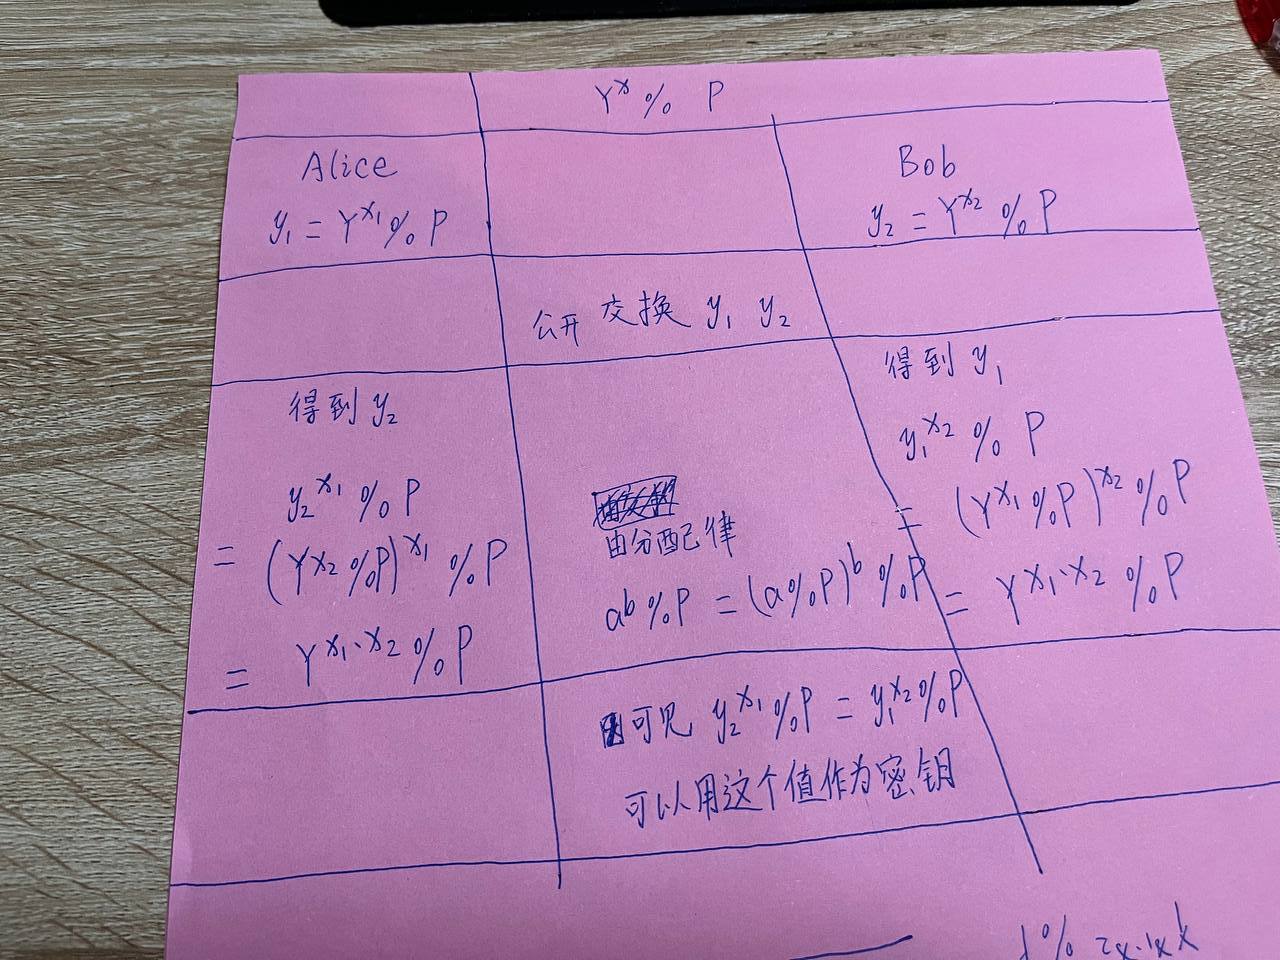 Y^x % P
Alice
y₁ = Y^x₁ % P
Bob
y₂ = Y^x₂ % P
公开 交换 y₁ y₂
得到 y₂
y₂^x₁ % P
= (Y^x₂ %P)^x₁ % P
= Y^x₁·x₂ % P
由分配律
a^b %P = (a%P)^b %P
得到 y₁
y₁^x₂ % P
= (Y^x₁ %P)^x₂ %P
= Y^x₁·x₂ %P
可见 y₂^x₁ %P = y₁^x₂ %P
可以用这个值作为密钥